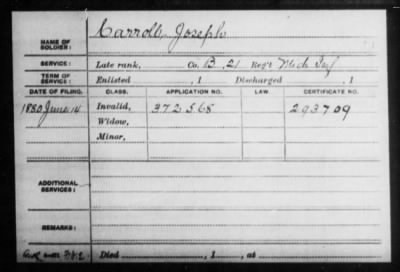 NAME OF SOLDIER: Carroll, Joseph
SERVICE: Late rank, Co. B, 21 Reg't Mich Inf
TERM OF SERVICE: Enlisted , 1 Discharged , 1
DATE OF FILING. CLASS. APPLICATION NO. LAW. CERTIFICATE NO.
1880 June 14 Invalid, 372568 293709
Widow,
Minor,
ADDITIONAL SERVICES:
REMARKS:
Died , 1 , at